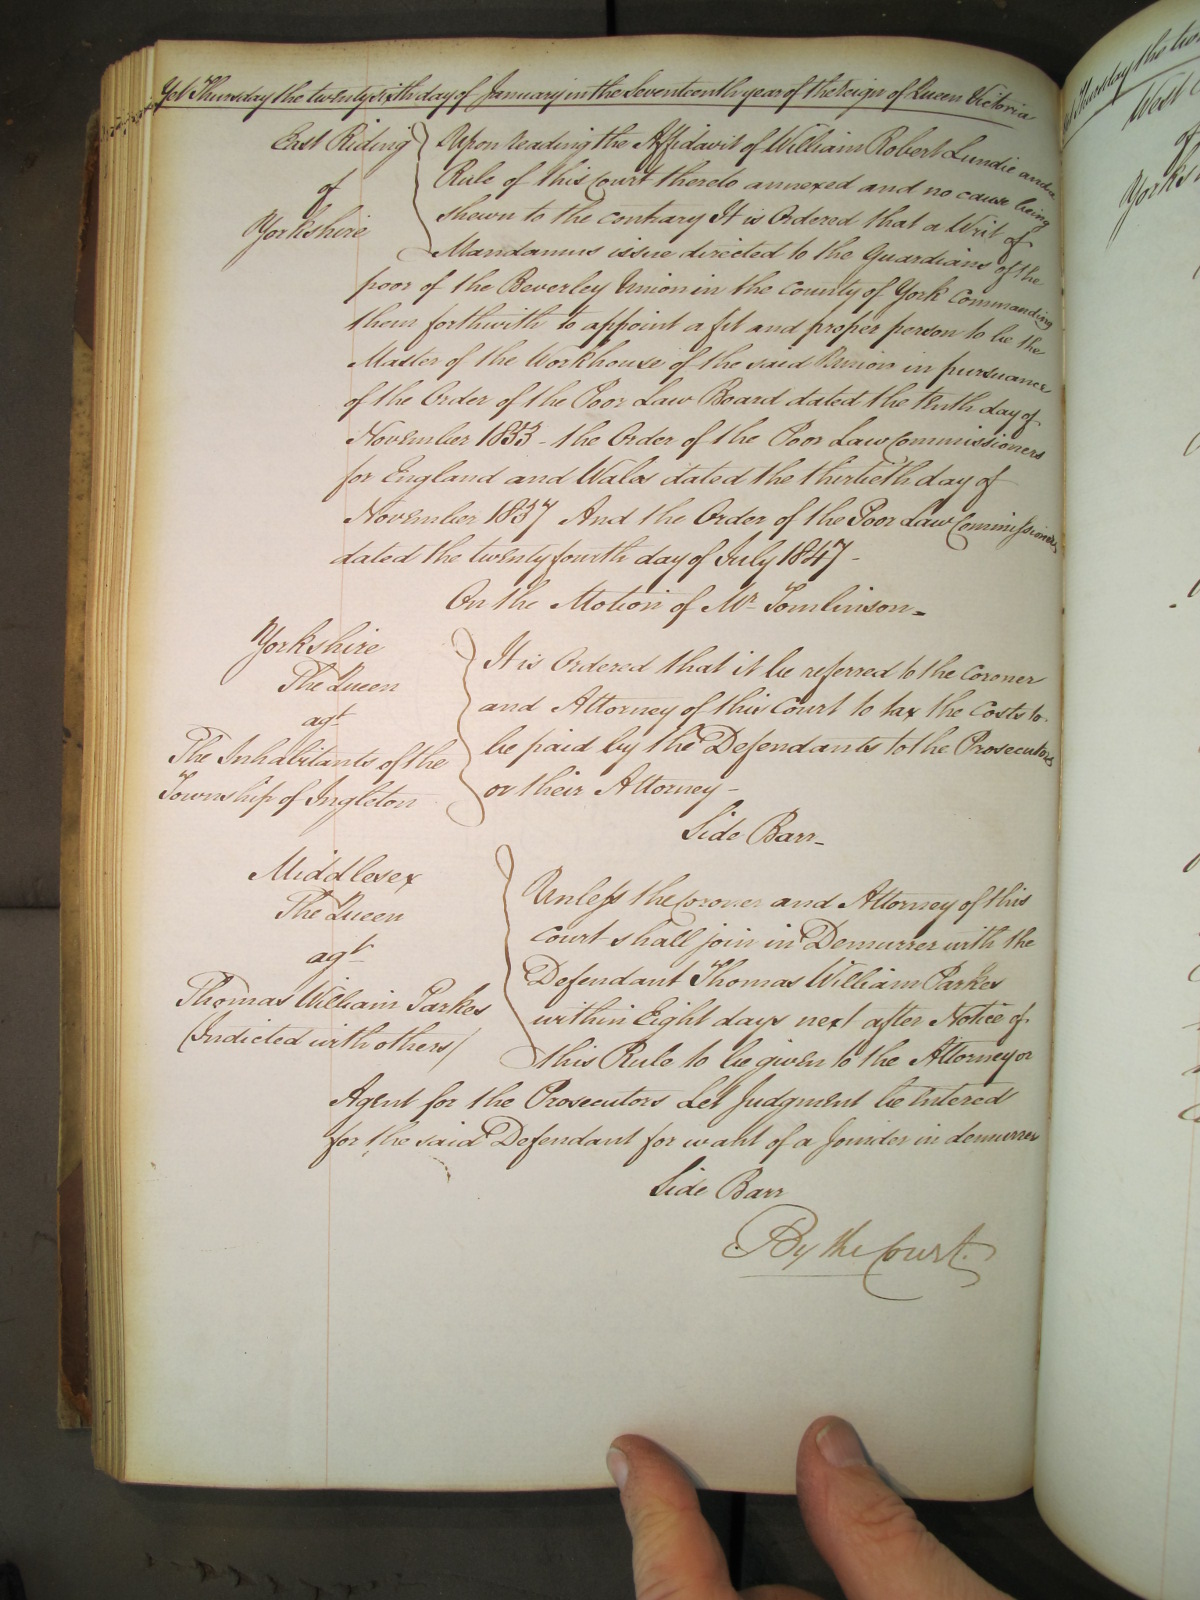 Yet Thursday the twenty sixth day of January in the Seventeenth year of the reign of Queen Victoria
East Riding
of
Yorkshire
Upon reading the Affidavit of William Robert Lundie and a
Rule of this Court thereto annexed and no cause being
shewn to the contrary It is Ordered that a Writ of
Mandamus issue directed to the Guardians of the
poor of the Beverley Union in the County of York Commanding
them forthwith to appoint a fit and proper person to be the
Master of the Workhouse of the said Union in pursuance
of the Order of the Poor Law Board dated the tenth day of
November 1853 - the Order of the Poor Law Commissioners
for England and Wales dated the thirtieth day of
November 1837 And the Order of the Poor Law Commissioners
dated the twenty fourth day of July 1847 -
On the Motion of Mr. Tomlinson -
Yorkshire
The Queen
agt
The Inhabitants of the
Township of Ingleton
It is Ordered that it be referred to the Coroner
and Attorney of this Court to tax the Costs to
be paid by the Defendants to the Prosecutors
or their Attorney -
Side Barr -
Middlesex
The Queen
agt
Thomas William Parkes
(Indicted with others)
Unless the Coroner and Attorney of this
Court shall join in Demurrer with the
Defendant Thomas William Parkes
within Eight days next after Notice of
this Rule to be given to the Attorney or
Agent for the Prosecutors Let Judgment be entered
for the said Defendant for want of a Joinder in demurrer
Side Barr
By the Court.
Thursday the
West
of
Yorksh